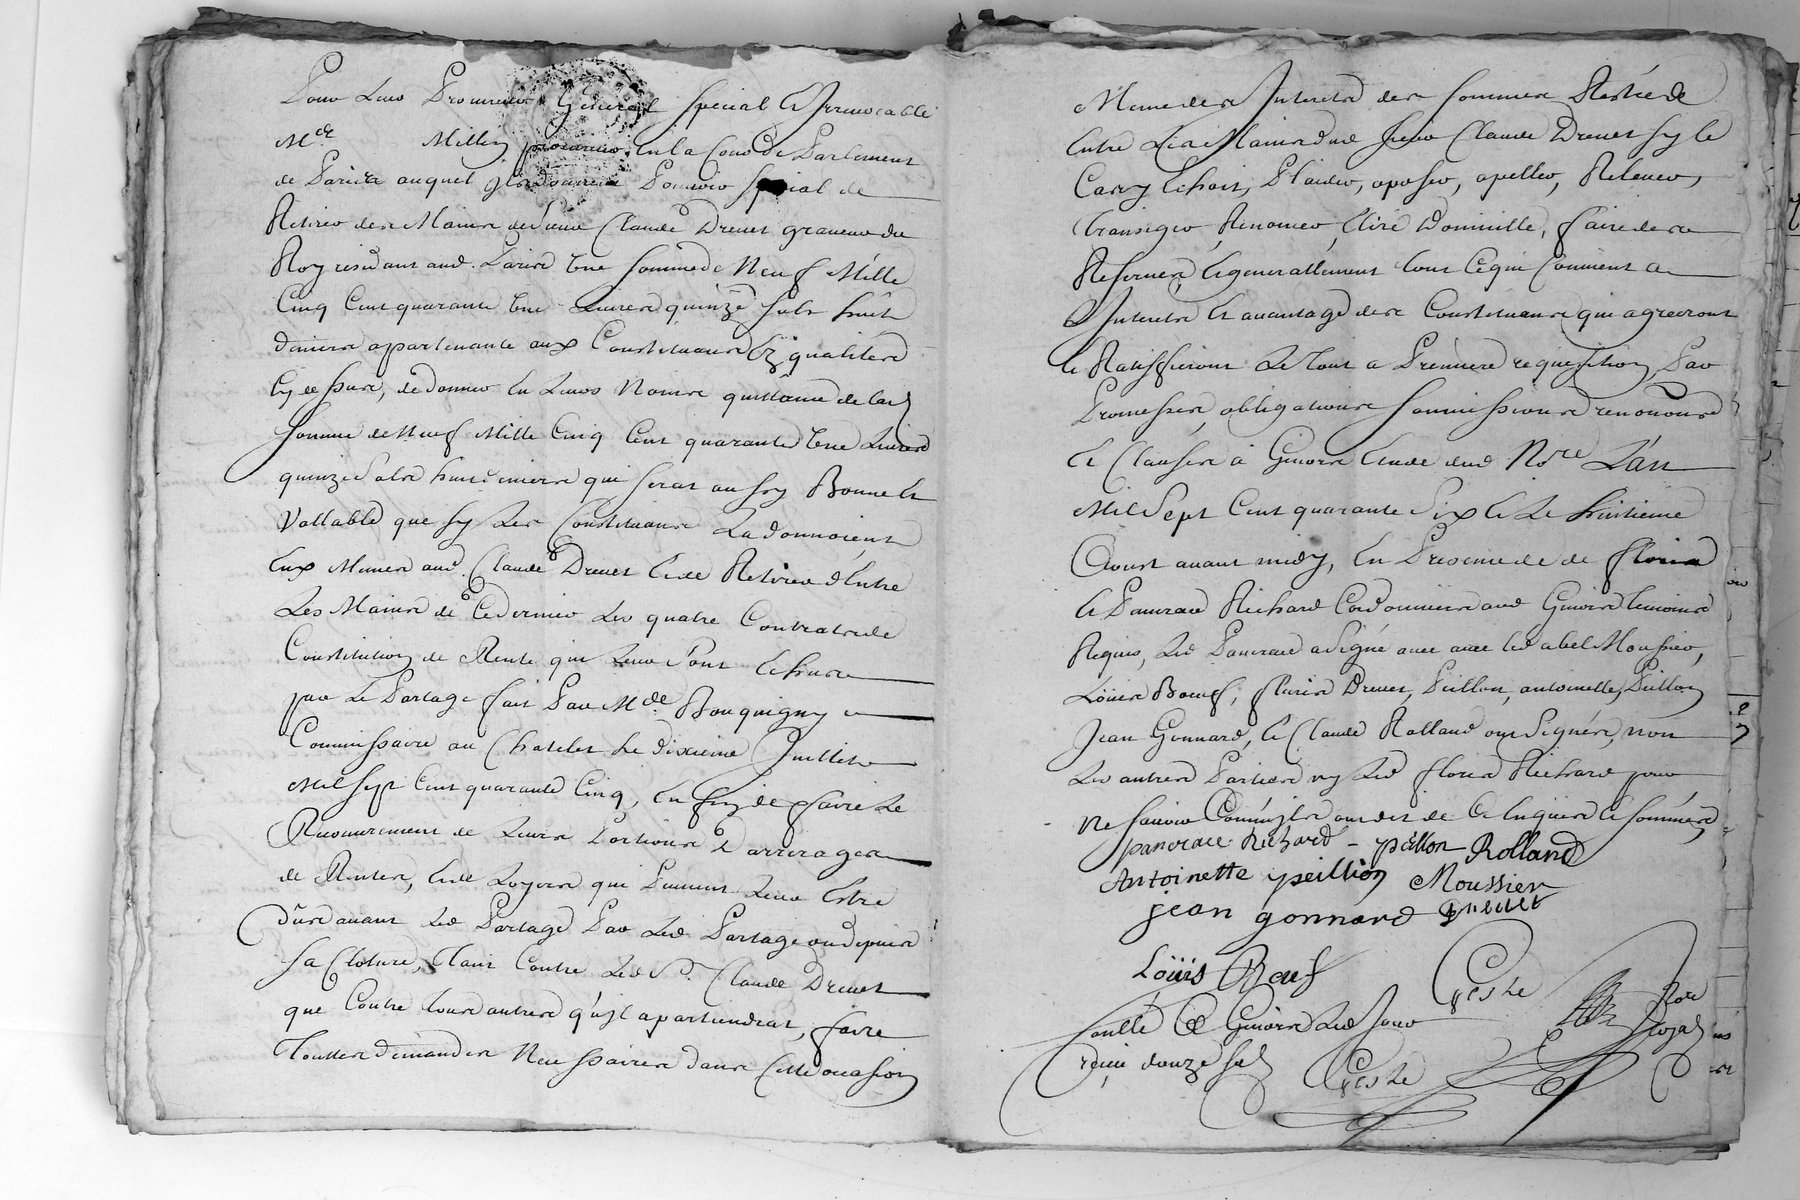 Pour Leur Procureur General special et Irrevocable
Me Millin procureur en la Cour de Parlement
de Paris auquel ils donnent Pouvoir special de
Retirer des Mains de Sieur Claude Drevet graveur du
Roy residant aud. Paris une somme de Neuf Mille
Cinq Cent quarante une Livres quinze sols huit
deniers apartenante aux Constituans Ez qualités
Cy dessus, de donner en Leurs Noms quittance de lad
somme de Neuf Mille Cinq Cent quarante une Livres
quinze sols huit deniers qui serat aussy Bonne et
Vallable que sy Les Constituans La donnoient
Eux Memes aud. Claude Drevet et de Retirer d'Entre
Les Mains de Ce dernier Les quatre Contrats de
Constitution de Rente qui Leur sont Echus
par Le Partage fait Par Me De Bouquigny
Commissaire au Chatelet Le dixieme Juillet
Mil sept Cent quarante Cinq, En fin de faire Le
Recouvrement de Leurs Portions D'arrerages
de Rentes, et de Loyers qui Peuvent Leur Estre
dûs avant Led Partage Par Led Partage ou depuis
sa Cloture, Tant Contre Led Sr. Claude Drevet
que Contre tous autres qu'il apartiendrat, faire
Touttes demandes Necessaires dans Cette occasion
Meme des Interets des sommes Restées
Entre Les Mains dud sieur Claude Drevet sy le
Cas y Echoit, Plaider, oposer, apeller, Relever,
transiger, Renoncer, Elire Domicille, faire des
Reserves, et generallement tout Ce qui Convient a
L'Interets et avantage des Constituans qui agreeront
et Ratiffieront Le tout a Premiere requisition Par
Promesses, obligations soumissions renonons
et Clauses a Givors Etude dud Nore L'an
Mil Sept Cent quarante Six et Le huitieme
Aoust avant midy, En Presence de de floris
et Pancrace Richard Cordonniers aud Givors temoins
Requis, Led Pancrace a signé avec lesd abel Moussier,
Loüis Boeuf, Drevet, Peillon, antoinette Peillon
Jean Gonnard, et Claude Rolland ont Signés, non
Les autres Parties ny Led floris Richard pour
ne savoir Comm'ils ont dit de Ce Enquis et sommés
pancrace Richard - peillon Rolland
Antoinette peillion Moussier
jean gonnard Drevet
Loüis Boeuf
Geste Nore
Royal
Conllé a Givors Led Jour
reçu douze sols
Geste